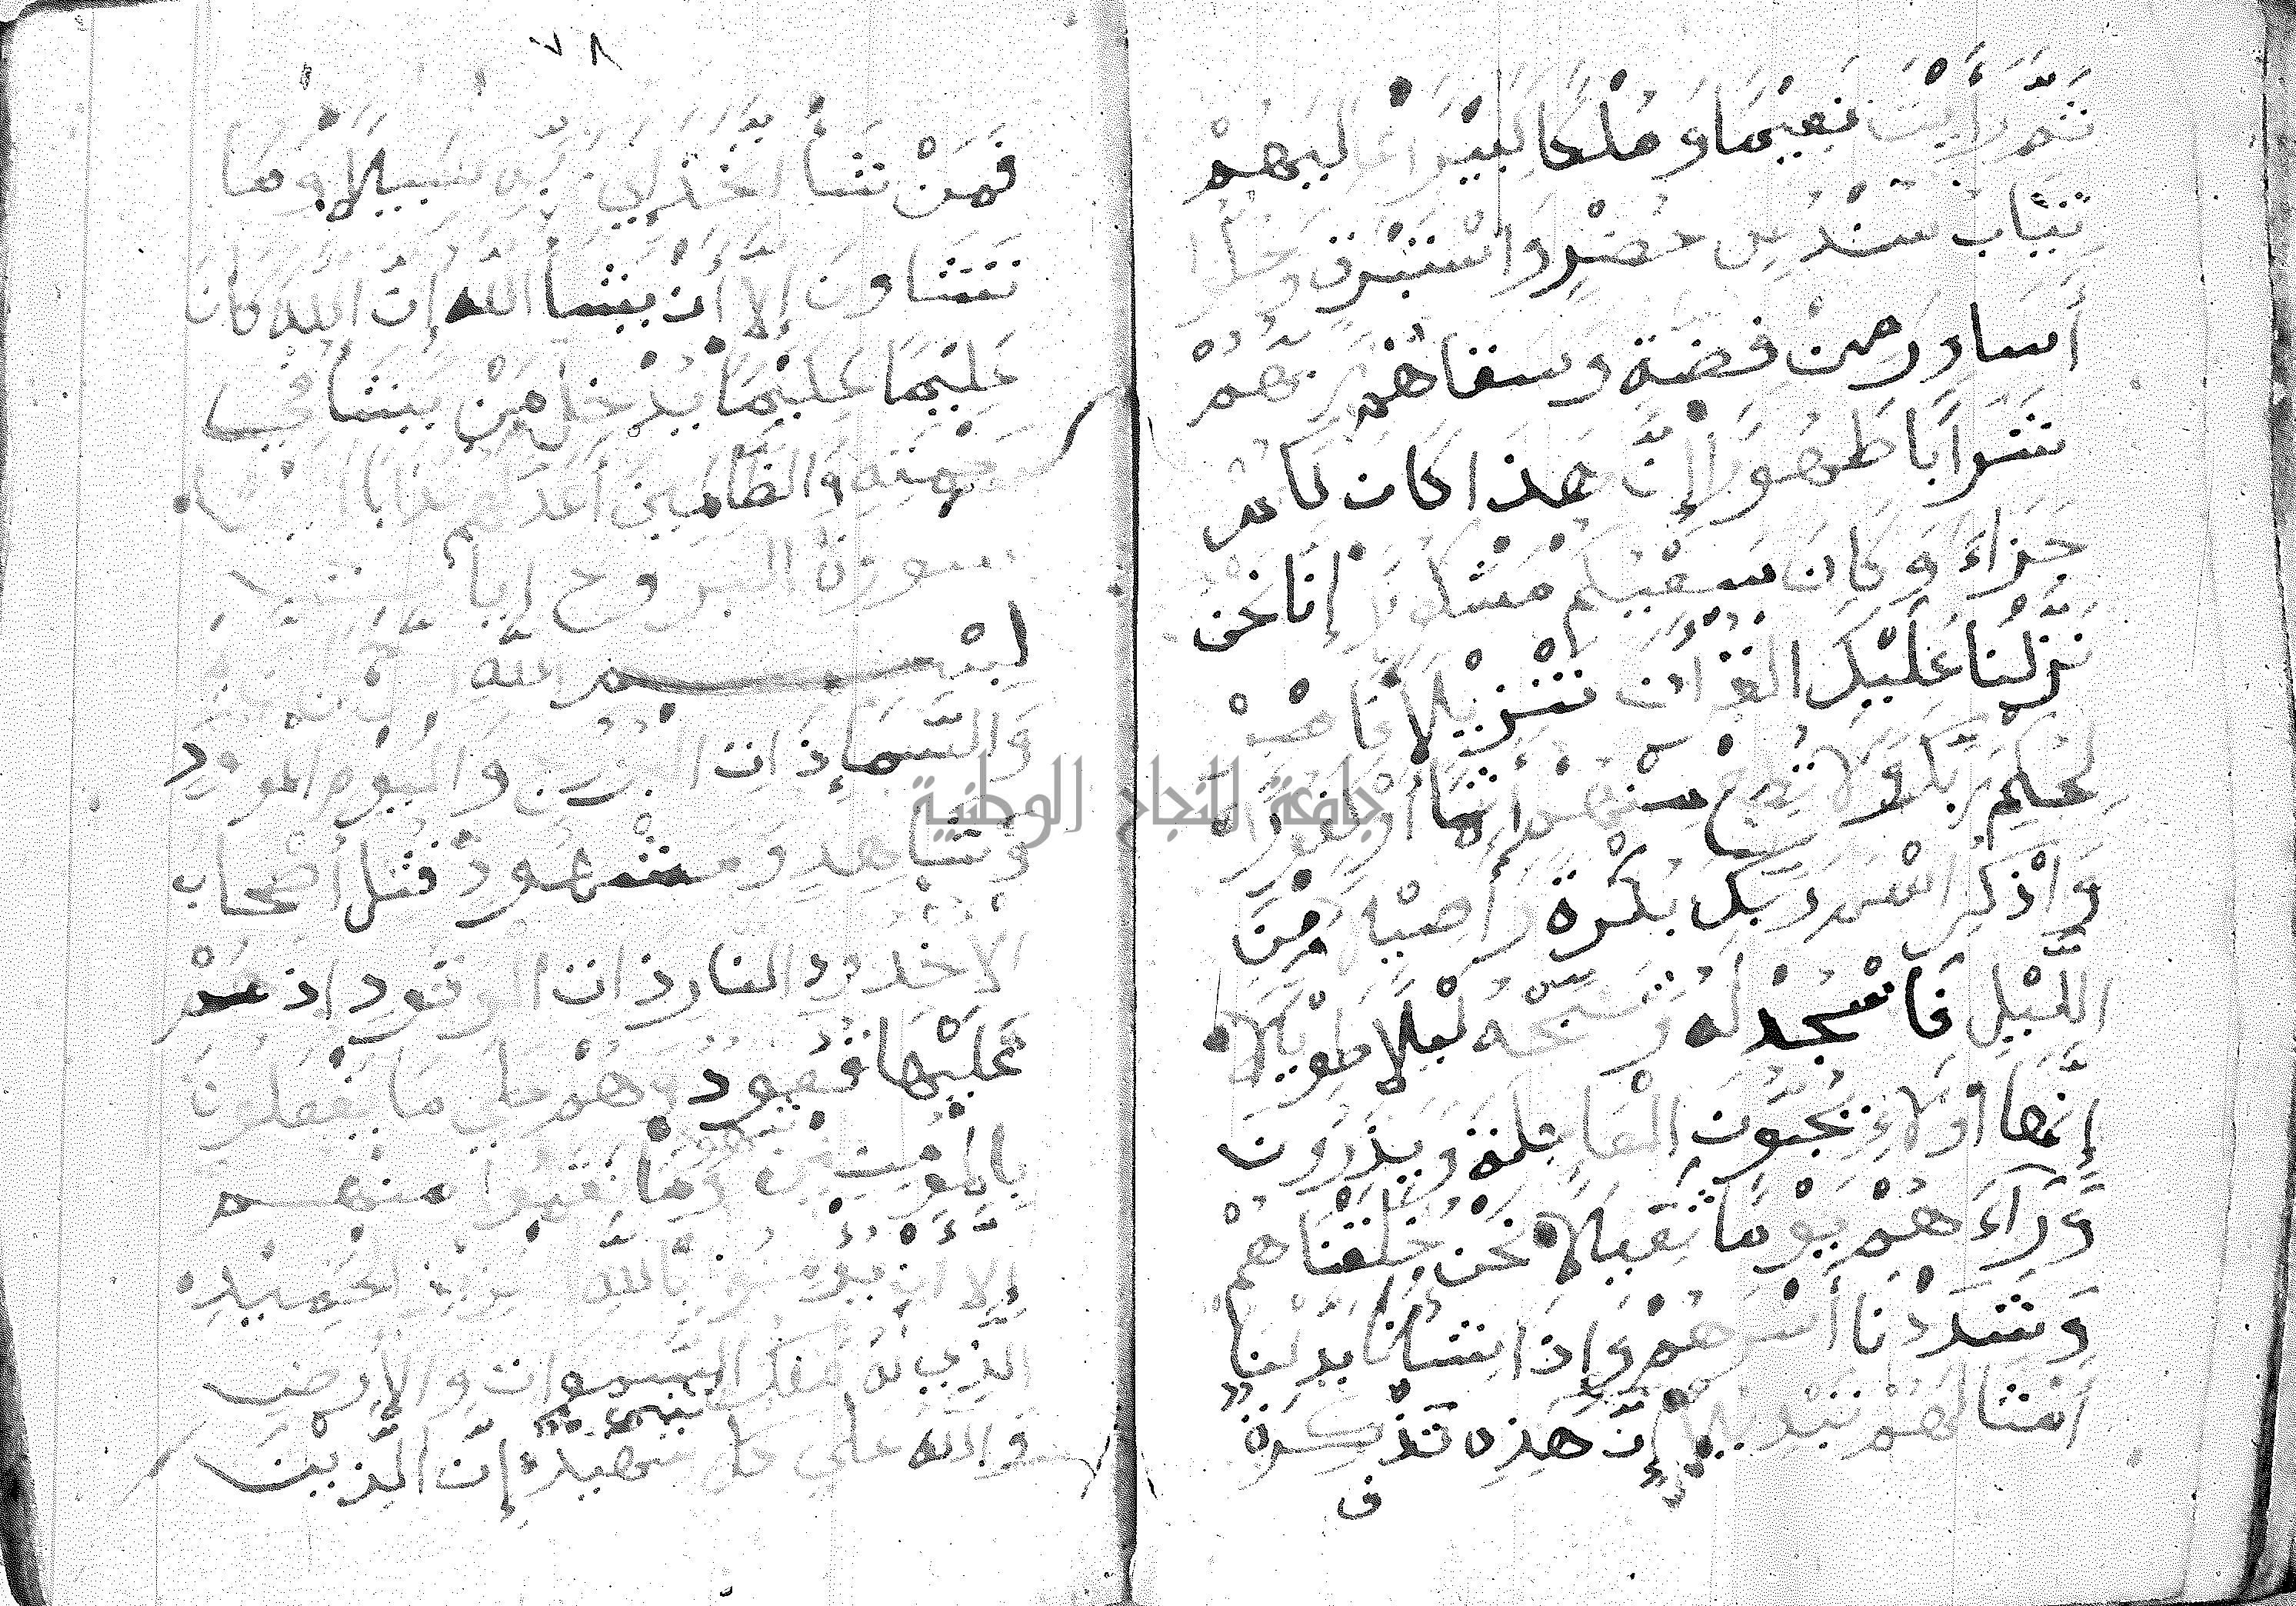 ثَمَّ رَأَيْتَ نَعِيْمًا وَمُلْكًا كَبِيْرًا عَالِيَهُمْ
ثِيَابُ سُنْدُسٍ خُضْرٍ وَاسْتَبْرَقٍ وَحُلُّوا
أَسَاوِرَ مِنْ فِضَّةٍ وَسَقَاهُمْ رَبُّهُمْ
شَرَابًا طَهُوْرًا إِنَّ هذا كان لكم
جَزَاءً وَكَانَ سَعْيُكُم مَشْكُورًا إِنَا نحن
نَزَّلْنَا عَلَيْكَ القُرْآن تَنْزِيْلًا فَاصْبِرْ
لِحُكْمِ رَبِّكَ وَلَا تُطِعْ مِنْهُمْ أَثِمًا أَوْ كَفُوْرًا
وَاذْكُرِ اسْمَ رَبِّكَ بُكْرَةً وَأَصِيْلًا وَمِنَ
اللَّيْلِ فَاسْجُدْ لَهُ وَسَبِّحْهُ لَيْلًا طَوِيْلًا
إِنَّمَا أولاءِ يُحِبُّونَ الْعَاجِلَةَ وَيَذَرُوْنَ
وَرَآءَهُمْ يَوْمًا ثَقِيْلًا نَحْنُ خَلَقْنَاهُمْ
وَشَدَدْنَا أَسْرَهُمْ وَإِذَا شِئْنَا بَدَّلْنَا
امْثَالَهُمْ تَبْدِيْلًا إِنَّ هَذِهِ تَذْكِرَةٌ
ف
٧٨
فَمَنْ شَأَ اتَّخَذَ إِلَى رَبِّهِ سَبِيْلًا وَمَا
تَشَاوُنَ إِلَّا أَنْ يَشَأَ اللَّهُ إِنَّ اللَّهَ كَانَ
عَلِيْمًا حَكِيْمًا يُدْخِلُ مَنْ يَشَأُ فِي
رحمته وَالظَّالِمِينَ أَعَدَّ لَهُم عَذَابًا اليما
سورة البروح
بِسْــــمِ اللَّهِ
وَالسَّمَاءِ ذَاتِ الْبُرُوْجِ وَالْيَوْمِ الموعود
وَشَاهِدٍ وَمَشْهُوْدٍ قُتِلَ أَصْحَابُ
الاخْدُوْدِ النار ذات الوقود إذ هُمْ
عَلَيْهَا قُعُودٌ وَهُمْ عَلَى مَا يَفْعَلُوْنَ
بِالْمُؤْمِنِيْنَ شهود وَمَا نَقَمُوْا مِنْهُم
إلا أن يُؤْمِنُوْا بِاللَّهِ الْعَزِيْزِ الْحَمِيْدِ
الَّذِي لَهُ مُلْكُ السَّمَوَاتِ وَالأَرْضِ
وَاللَّهُ عَلَى كل شيء شَهِيْدٌ إِنَّ الَّذِيْنَ
جامعة النجاح الوطنية